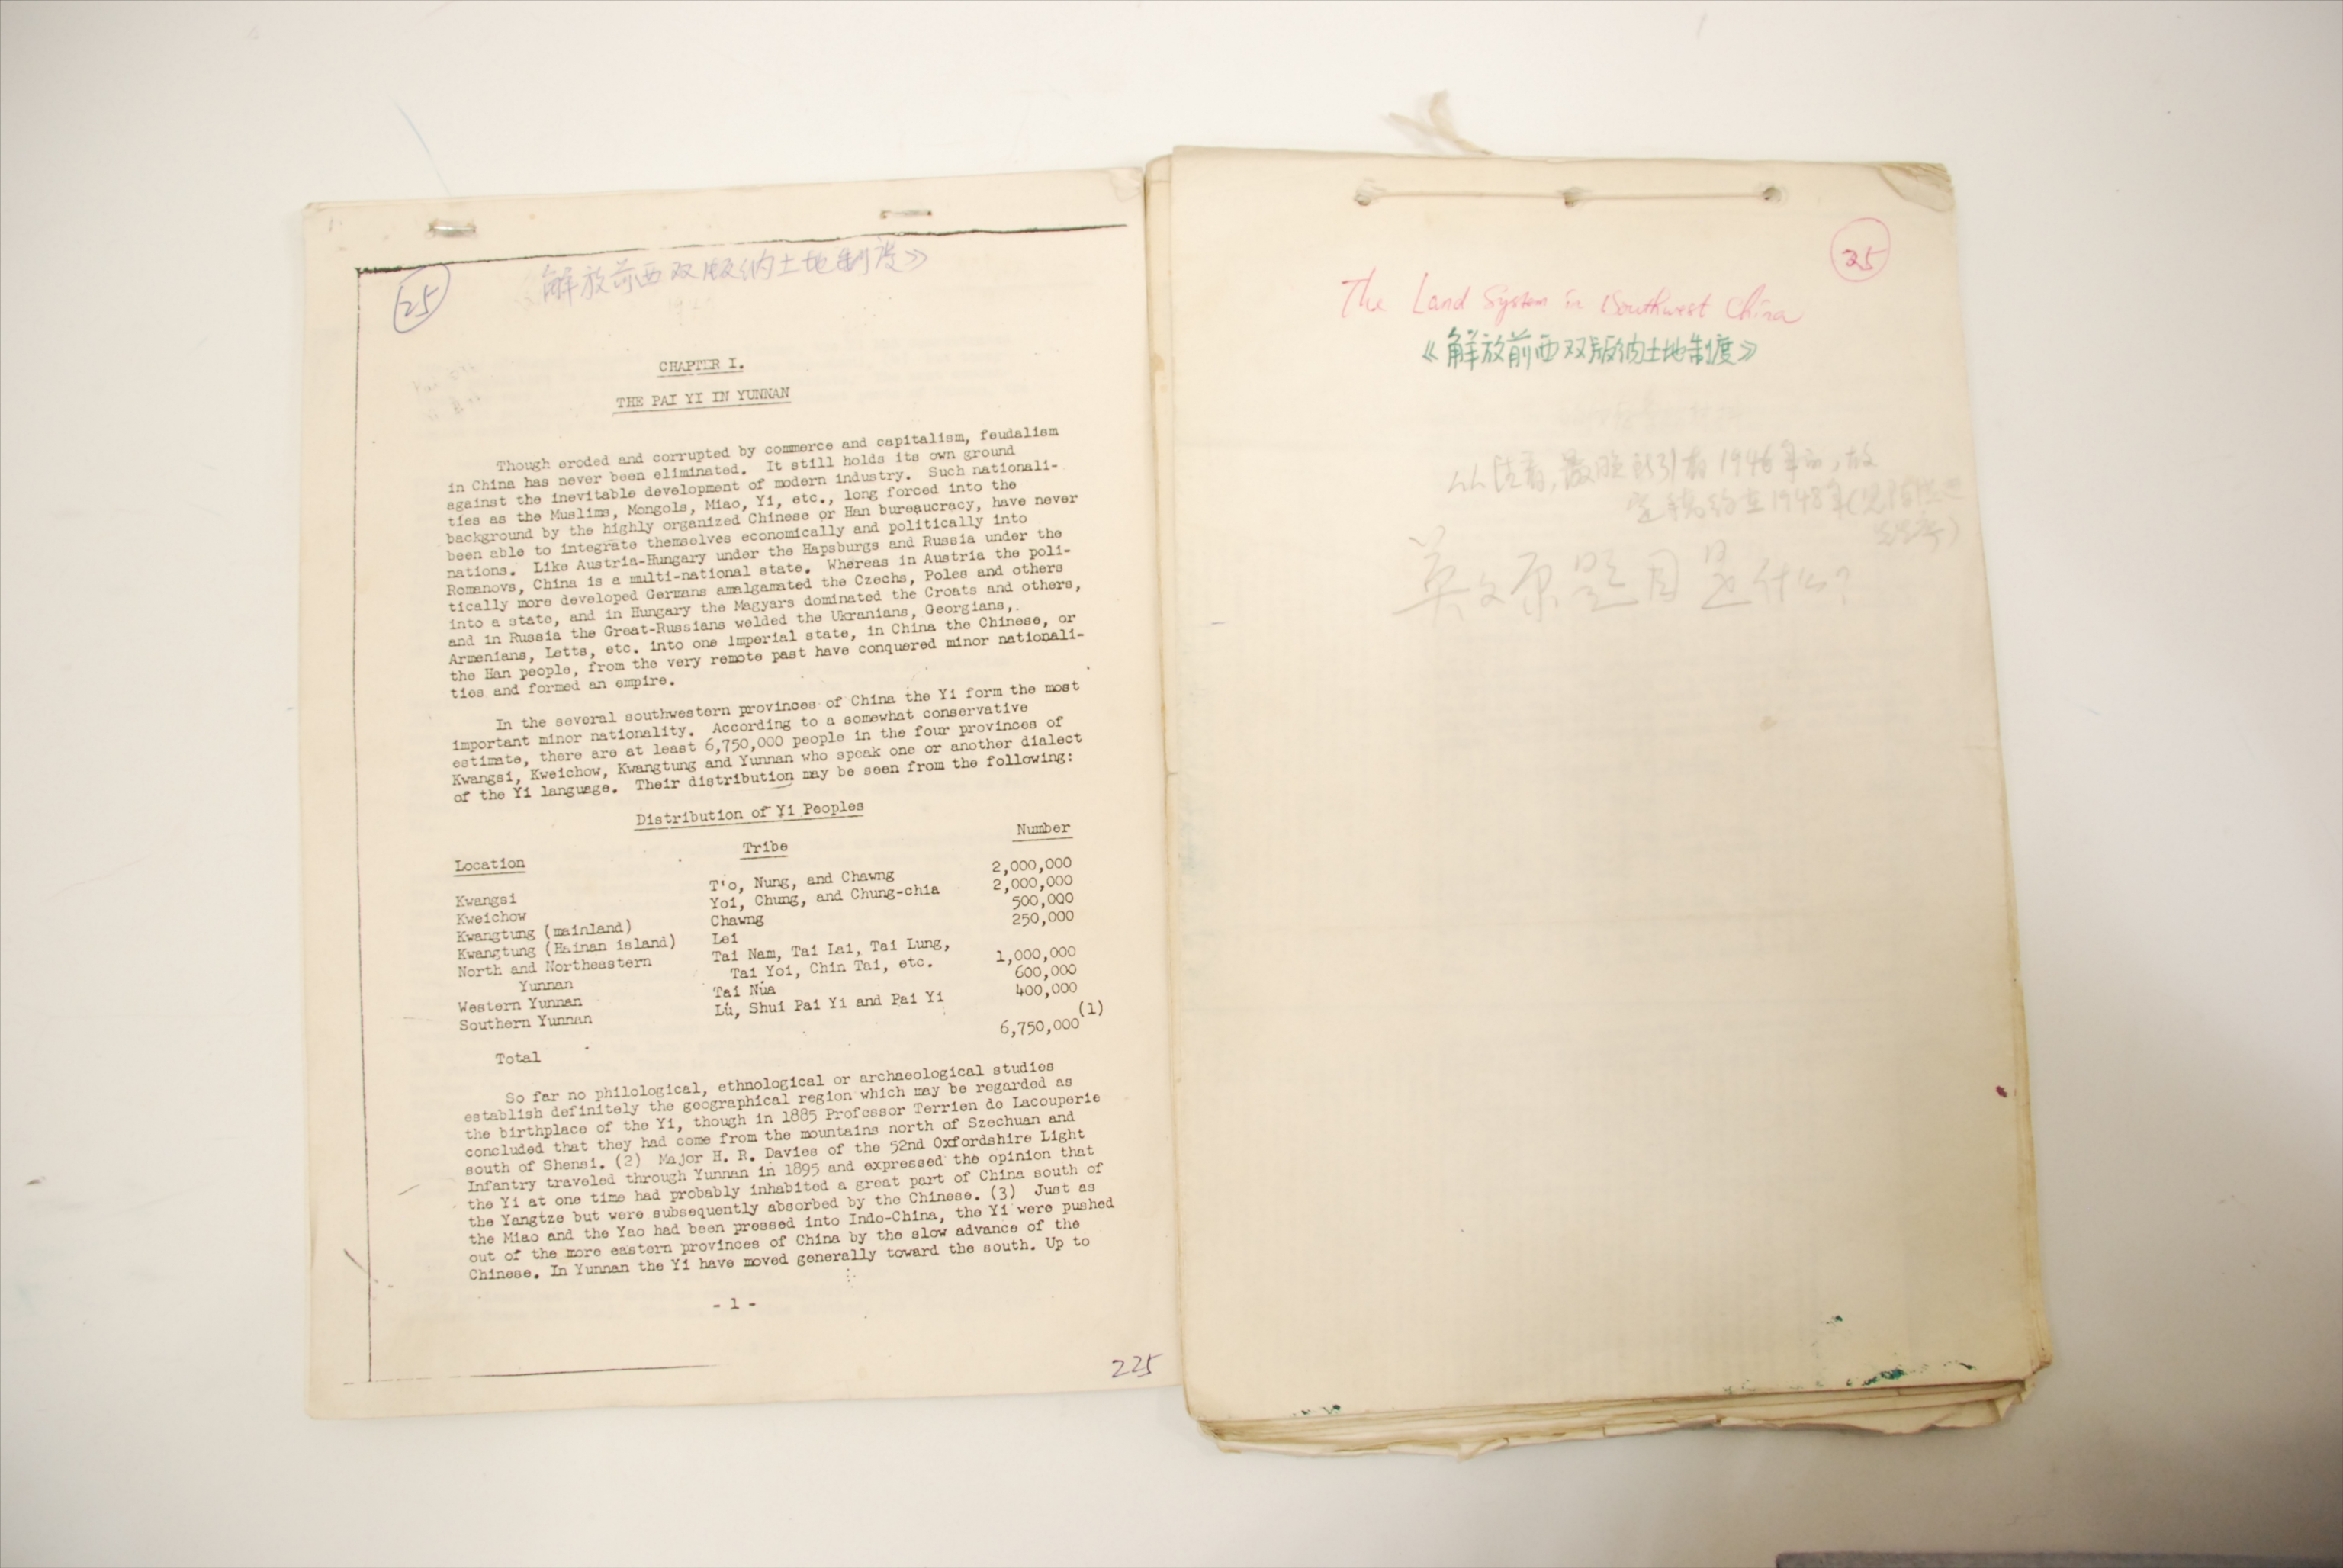 25
《解放前西双版纳土地制度》
CHAPTER I.
THE PAI YI IN YUNNAN
Though eroded and corrupted by commerce and capitalism, feudalism
in China has never been eliminated. It still holds its own ground
against the inevitable development of modern industry. Such nationali-
ties as the Muslims, Mongols, Miao, Yi, etc., long forced into the
background by the highly organized Chinese or Han bureaucracy, have never
been able to integrate themselves economically and politically into
nations. Like Austria-Hungary under the Hapsburgs and Russia under the
Romanovs, China is a multi-national state. Whereas in Austria the poli-
tically more developed Germans amalgamated the Czechs, Poles and others
into a state, and in Hungary the Magyars dominated the Croats and others,
and in Russia the Great-Russians welded the Ukranians, Georgians,
Armenians, Letts, etc. into one imperial state, in China the Chinese, or
the Han people, from the very remote past have conquered minor nationali-
ties and formed an empire.
In the several southwestern provinces of China the Yi form the most
important minor nationality. According to a somewhat conservative
estimate, there are at least 6,750,000 people in the four provinces of
Kwangsi, Kweichow, Kwangtung and Yunnan who speak one or another dialect
of the Yi language. Their distribution may be seen from the following:
Distribution of Yi Peoples
Location Tribe Number
Kwangsi T'o, Nung, and Chawng 2,000,000
Kweichow Yoi, Chung, and Chung-chia 2,000,000
Kwangtung (mainland) Chawng 500,000
Kwangtung (Hainan island) Lei 250,000
North and Northeastern Tai Nam, Tai Lai, Tai Lung,
Yunnan Tai Yoi, Chin Tai, etc. 1,000,000
Western Yunnan Tai Nüa 600,000
Southern Yunnan Lü, Shui Pai Yi and Pai Yi 400,000
Total 6,750,000 (1)
So far no philological, ethnological or archaeological studies
establish definitely the geographical region which may be regarded as
the birthplace of the Yi, though in 1885 Professor Terrien de Lacouperie
concluded that they had come from the mountains north of Szechuan and
south of Shensi. (2) Major H. R. Davies of the 52nd Oxfordshire Light
Infantry traveled through Yunnan in 1895 and expressed the opinion that
the Yi at one time had probably inhabited a great part of China south of
the Yangtze but were subsequently absorbed by the Chinese. (3) Just as
the Miao and the Yao had been pressed into Indo-China, the Yi were pushed
out of the more eastern provinces of China by the slow advance of the
Chinese. In Yunnan the Yi have moved generally toward the south. Up to
- 1 -
225
25
The Land System in Southwest China
《解放前西双版纳土地制度》
1946年
1948年
英文原题目是什么?